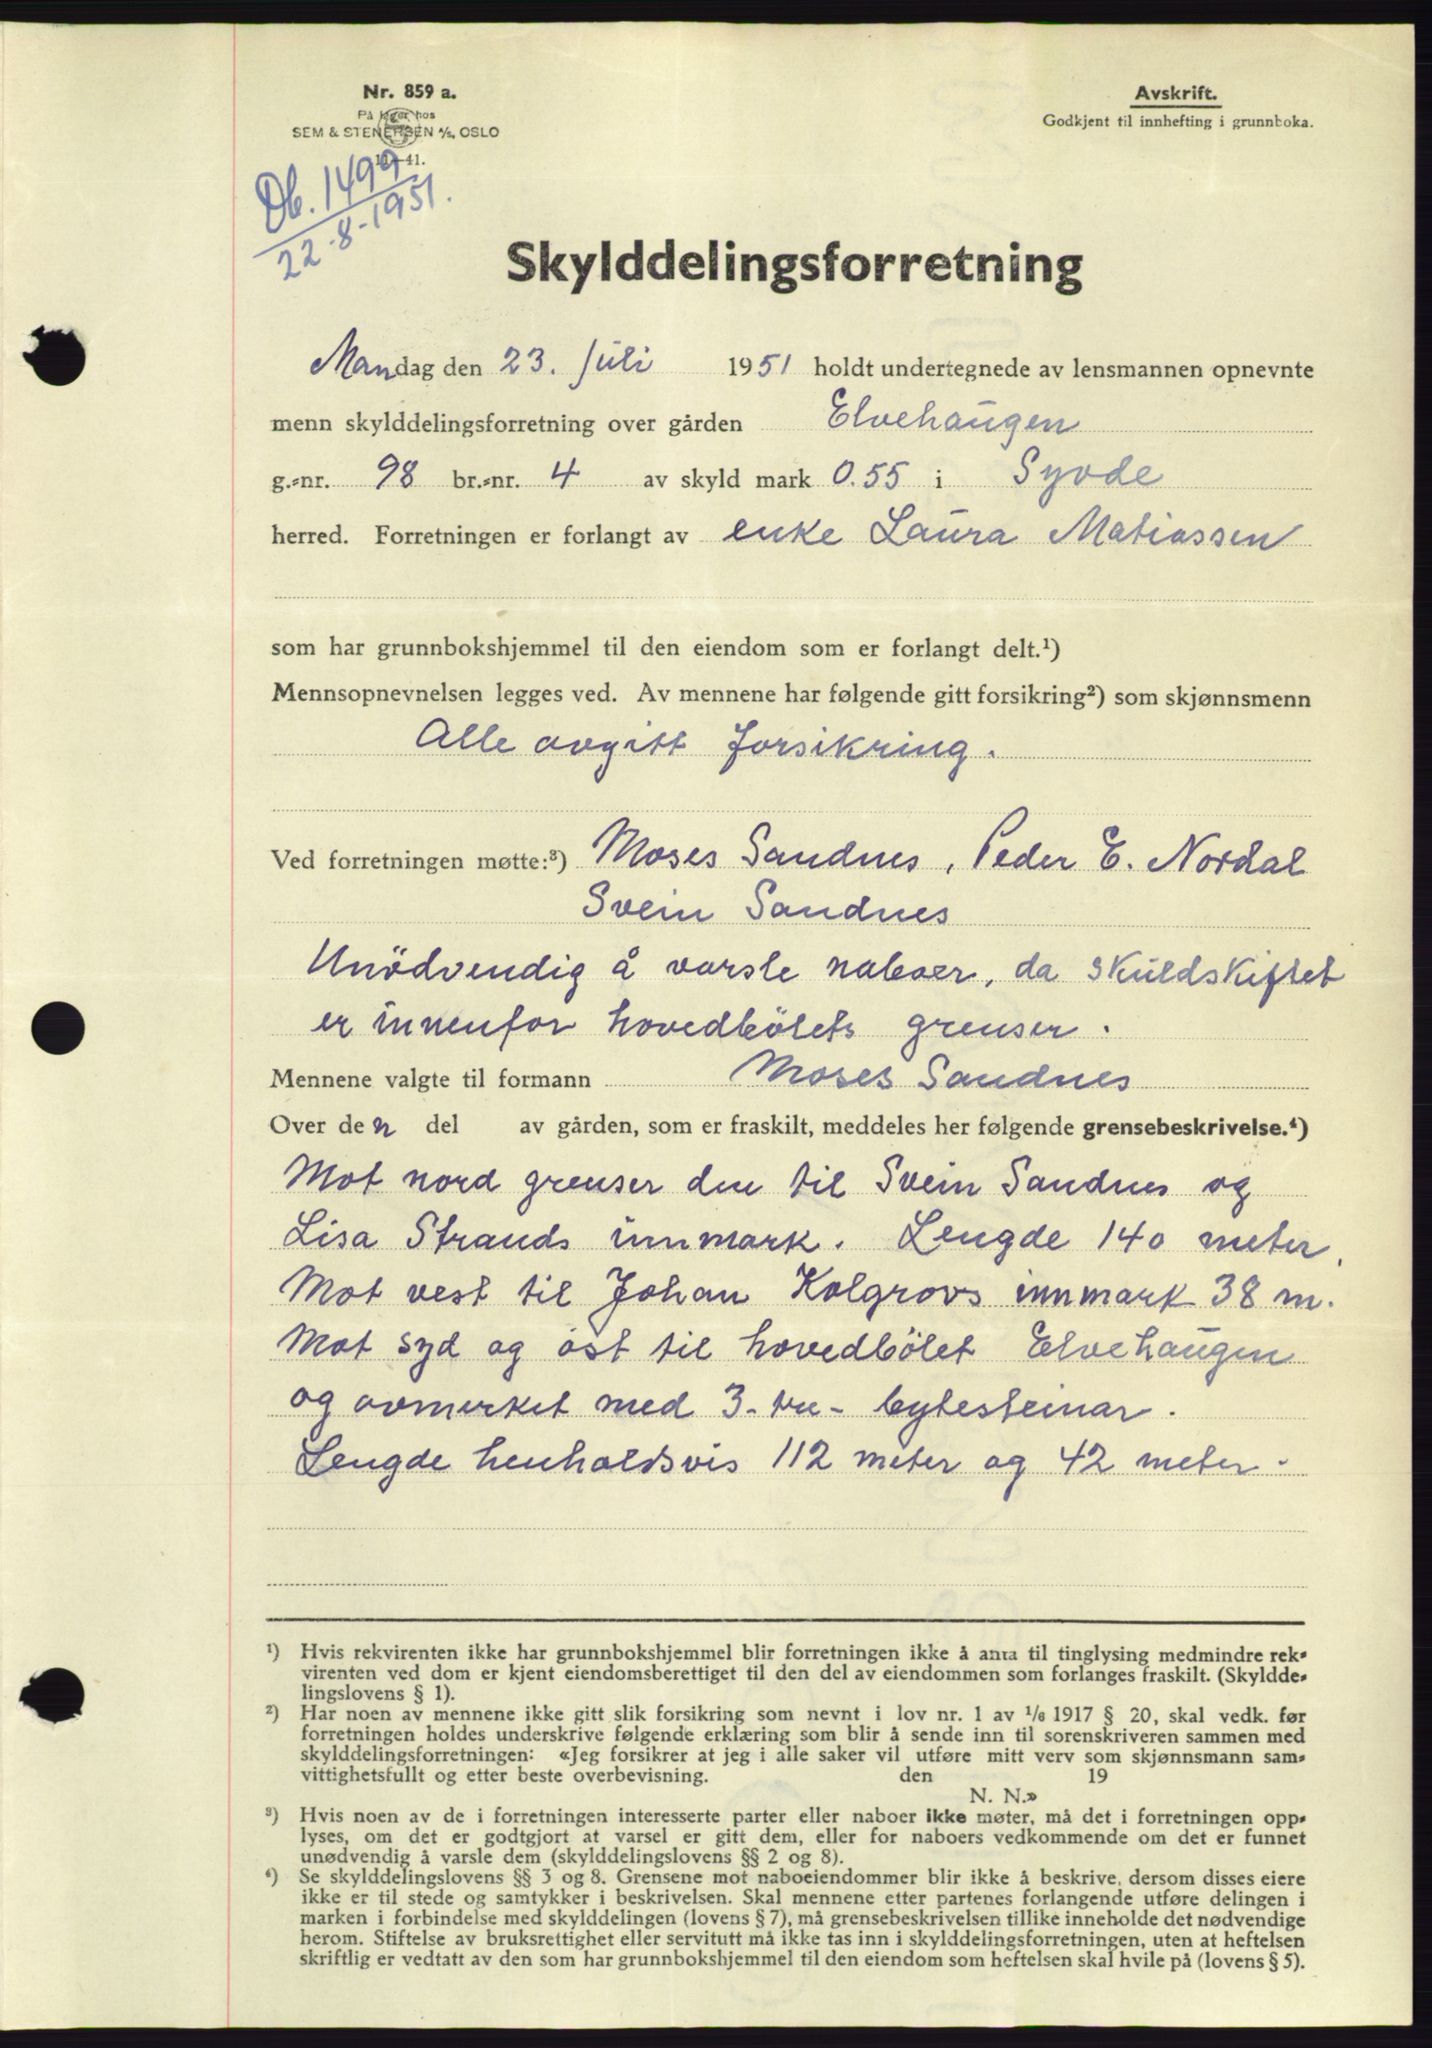 Nr. 859 a.
På lager hos
SEM & STENERSEN A/S, OSLO
11—41.
Avskrift.
Godkjent til innhefting i grunnboka.
Db. 1499
22-8-1951.
Skylddelingsforretning
Mandag den 23. juli 1951 holdt undertegnede av lensmannen opnevnte
menn skylddelingsforretning over gården Elvehaugen
g.-nr. 98 br.-nr. 4 av skyld mark 0.55 i Syvde
herred. Forretningen er forlangt av enke Laura Matiassen
som har grunnbokshjemmel til den eiendom som er forlangt delt.¹)
Mennsopnevnelsen legges ved. Av mennene har følgende gitt forsikring²) som skjønnsmenn
Alle avgitt forsikring.
Ved forretningen møtte:³) Moses Sandnes, Peder E. Nordal
Svein Sandnes
Unödvendig å varsle naboer, da skuldskiftet
er innenfor hovedbölets grenser.
Mennene valgte til formann Moses Sandnes
Over den del av gården, som er fraskilt, meddeles her følgende grensebeskrivelse.⁴)
Mot nord grenser den til Svein Sandnes og
Lisa Strands innmark. Lengde 140 meter.
Mot vest til Johan Kolgrovs innmark 38 m.
Mot syd og öst til hovedbölet Elvehaugen
og avmerket med 3-tre- bytesteinar.
Lengde henholdsvis 112 meter og 42 meter.
¹) Hvis rekvirenten ikke har grunnbokshjemmel blir forretningen ikke å anta til tinglysing medmindre rek-
virenten ved dom er kjent eiendomsberettiget til den del av eiendommen som forlanges fraskilt. (Skyldde-
lingslovens § 1).
²) Har noen av mennene ikke gitt slik forsikring som nevnt i lov nr. 1 av 1/6 1917 § 20, skal vedk. før
forretningen holdes underskrive følgende erklæring som blir å sende inn til sorenskriveren sammen med
skylddelingsforretningen: «Jeg forsikrer at jeg i alle saker vil utføre mitt verv som skjønnsmann sam-
vittighetsfullt og etter beste overbevisning. den 19
N. N.»
³) Hvis noen av de i forretningen interesserte parter eller naboer ikke møter, må det i forretningen opp-
lyses, om det er godtgjort at varsel er gitt dem, eller for naboers vedkommende om det er funnet
unødvendig å varsle dem (skylddelingslovens §§ 2 og 8).
⁴) Se skylddelingslovens §§ 3 og 8. Grensene mot naboeiendommer blir ikke å beskrive, dersom disses eiere
ikke er til stede og samtykker i beskrivelsen. Skal mennene etter partenes forlangende utføre delingen i
marken i forbindelse med skylddelingen (lovens § 7), må grensebeskrivelsen tillike inneholde det nødvendige
herom. Stiftelse av bruksrettighet eller servitutt må ikke tas inn i skylddelingsforretningen, uten at heftelsen
skriftlig er vedtatt av den som har grunnbokshjemmel til den eiendom som heftelsen skal hvile på (lovens § 5).